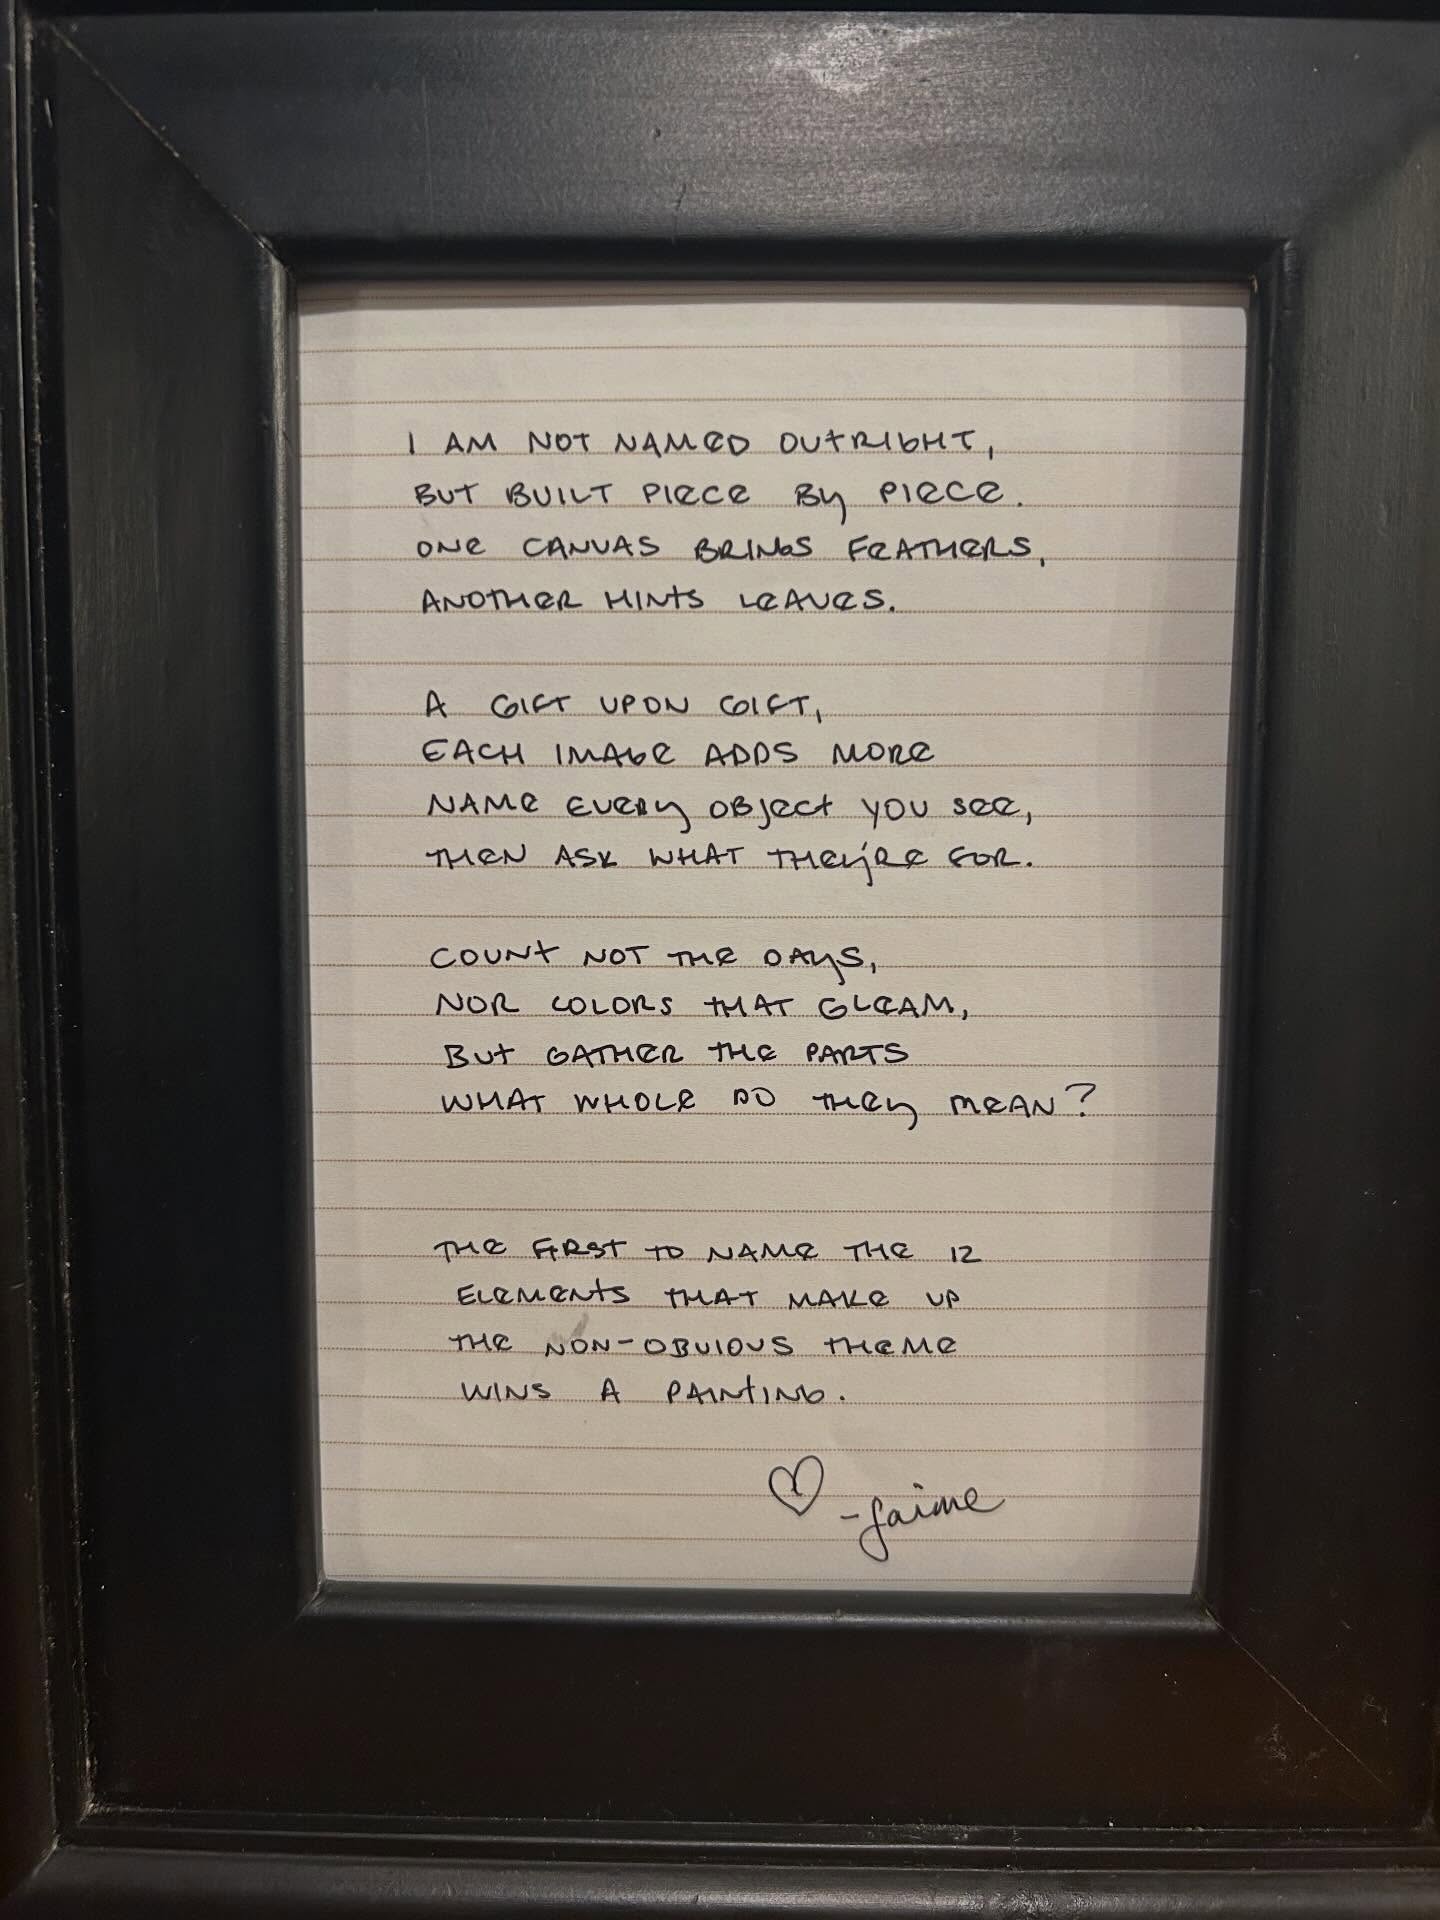 I AM NOT NAMED OUTRIGHT,
BUT BUILT PIECE BY PIECE.
ONE CANVAS BRINGS FEATHERS,
ANOTHER HINTS LEAVES.
A GIFT UPON GIFT,
EACH IMAGE ADDS MORE
NAME EVERY OBJECT YOU SEE,
THEN ASK WHAT THEY'RE FOR.
COUNT NOT THE DAYS,
NOR COLORS THAT GLEAM,
BUT GATHER THE PARTS
WHAT WHOLE DO THEY MEAN?
THE FIRST TO NAME THE 12
ELEMENTS THAT MAKE UP
THE NON-OBVIOUS THEME
WINS A PAINTING.
♡ -Jaime